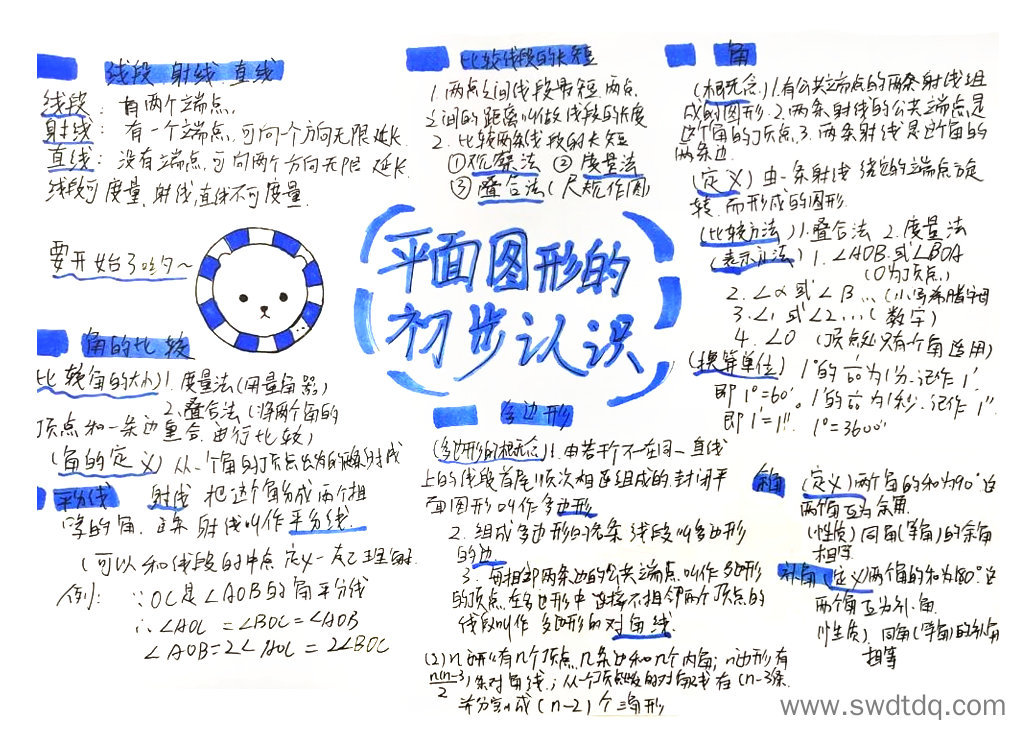 线段 射线 直线
线段：有两个端点.
射线：有一个端点,可向一个方向无限延长
直线：没有端点,可向两个方向无限延长
线段可度量,射线,直线不可度量.
要开始了哟~
角的比较
比较角的大小 1.度量法(用量角器)
2.叠合法(将两个角的
顶点和一条边重合,进行比较)
(角的定义) 从一个角的顶点出发的
平分线 射线 把这个角分成两个相
等的角.这条射线叫作平分线.
(可以和线段的中点定义一起理解.
例: ∵OC是∠AOB的角平分线
∴∠AOC=∠BOC=∠AOB
∠AOB=2∠AOC=2∠BOC
比较线段的长短
1.两点之间线段最短,两点
之间的距离叫做线段的长度
2.比较两条线段的长短
①观察法 ②度量法
③叠合法(尺规作图)
平面图形的
初步认识
多边形
(多边形的概念)1.由若干个不在同一直线
上的线段首尾顺次相连组成的封闭平
面图形叫作多边形
2.组成多边形的各条线段叫多边形
的边
3.每相邻两条边的公共端点叫作多边形
的顶点,在多边形中连接不相邻两个顶点的
线段叫作多边形的对角线.
(2)n边形有几个顶点,几条边和几个内角;n边形有
n(n-3)/2条对角线;从一个顶点出发的对角线有(n-3)条
并分割成(n-2)个三角形
角
(概念)1.有公共端点的两条射线组
成的图形.2.两条射线的公共端点是
这个角的顶点,3.两条射线是这个角的
两条边.
(定义)由一条射线绕它的端点旋
转而形成的图形
(比较方法)1.叠合法 2.度量法
(表示方法)1.∠AOB或∠BOA
(O为顶点)
2.∠α或∠β...(小写希腊字母
3.∠1或∠2...(数字)
4.∠O (顶点处只有个角适用)
(换算单位) 1°的1/60为1分.记作1′.
即1°=60′。1′的1/60为1秒.记作1″.
即1′=1″. 1°=3600″
余角 (定义)两个角的和为90°这
两个角互为余角.
(性质)同角(等角)的余角
相等
补角(定义)两个角的和为180°这
两个角互为补角.
(性质)同角(等角)的补角
相等
www.swdtdq.com